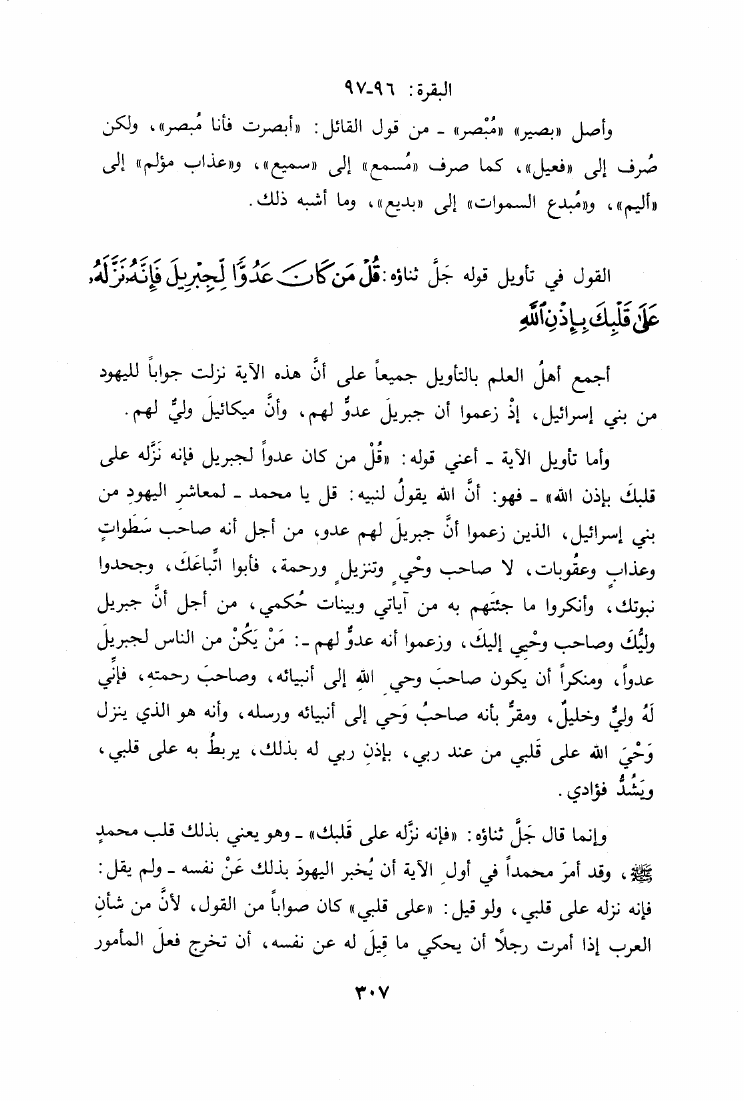 البقرة: ٩٦-٩٧
وأصل «بصير» «مُبْصر» - من قول القائل: «أبصرت فأنا مُبصر»، ولكن
صُرف إلى «فعيل»، كما صرف «مُسمع» إلى «سميع»، و«عذاب مؤلم» إلى
«أليم»، و«مُبدع السموات» إلى «بديع»، وما أشبه ذلك.
القول في تأويل قوله جَلَّ ثناؤه: قُلْ مَن كَانَ عَدُوًّا لِّجِبْرِيلَ فَإِنَّهُۥ نَزَّلَهُۥ
عَلَىٰ قَلْبِكَ بِإِذْنِ ٱللَّهِ
أجمع أهلُ العلم بالتأويل جميعاً على أنَّ هذه الآية نزلت جواباً لليهود
من بني إسرائيل، إذْ زعموا أن جبريلَ عدوٌّ لهم، وأنَّ ميكائيلَ وليٌّ لهم.
وأما تأويل الآية - أعني قوله: «قُلْ من كان عدواً لجبريل فإنه نَزَّله على
قلبكَ بإذن الله» - فهو: أنَّ الله يقولُ لنبيه: قل يا محمد - لمعاشرِ اليهودِ من
بني إسرائيل، الذين زعموا أنَّ جبريلَ لهم عدو، من أجل أنه صاحب سَطَواتٍ
وعذابٍ وعقُوبات، لا صاحب وحْيٍ وتنزيلٍ ورحمة، فأبوا اتِّباعَكَ، وجحدوا
نبوتك، وأنكروا ما جئتَهم به من آياتي وبينات حُكمي، من أجل أنَّ جبريل
وليُّكَ وصاحب وحْيي إليكَ، وزعموا أنه عدوٌّ لهم -: مَنْ يَكُنْ من الناس لجبريلَ
عدواً، ومنكراً أن يكون صاحبَ وحيِ اللهِ إلى أنبيائه، وصاحبَ رحمتهِ، فإنِّي
لَهُ وليٌّ وخليلٌ، ومقرٌّ بأنه صاحبُ وَحي إلى أنبيائه ورسله، وأنه هو الذي ينزل
وَحْيَ الله على قَلبي من عند ربي، بإذنِ ربي له بذلك، يربطُ به على قلبي،
ويَشُدُّ فؤادي.
وإنما قال جَلَّ ثناؤه: «فإنه نزَّله على قَلبك» - وهو يعني بذلك قلب محمدٍ
ﷺ، وقد أمرَ محمداً في أولِ الآية أن يُخبر اليهودَ بذلك عَنْ نفسه - ولم يقل:
فإنه نزله على قلبي، ولو قيل: «على قلبي» كان صواباً من القول، لأنَّ من شأنِ
العرب إذا أمرت رجلاً أن يحكي ما قِيلَ له عن نفسه، أن تخرج فعلَ المأمور
٣٠٧